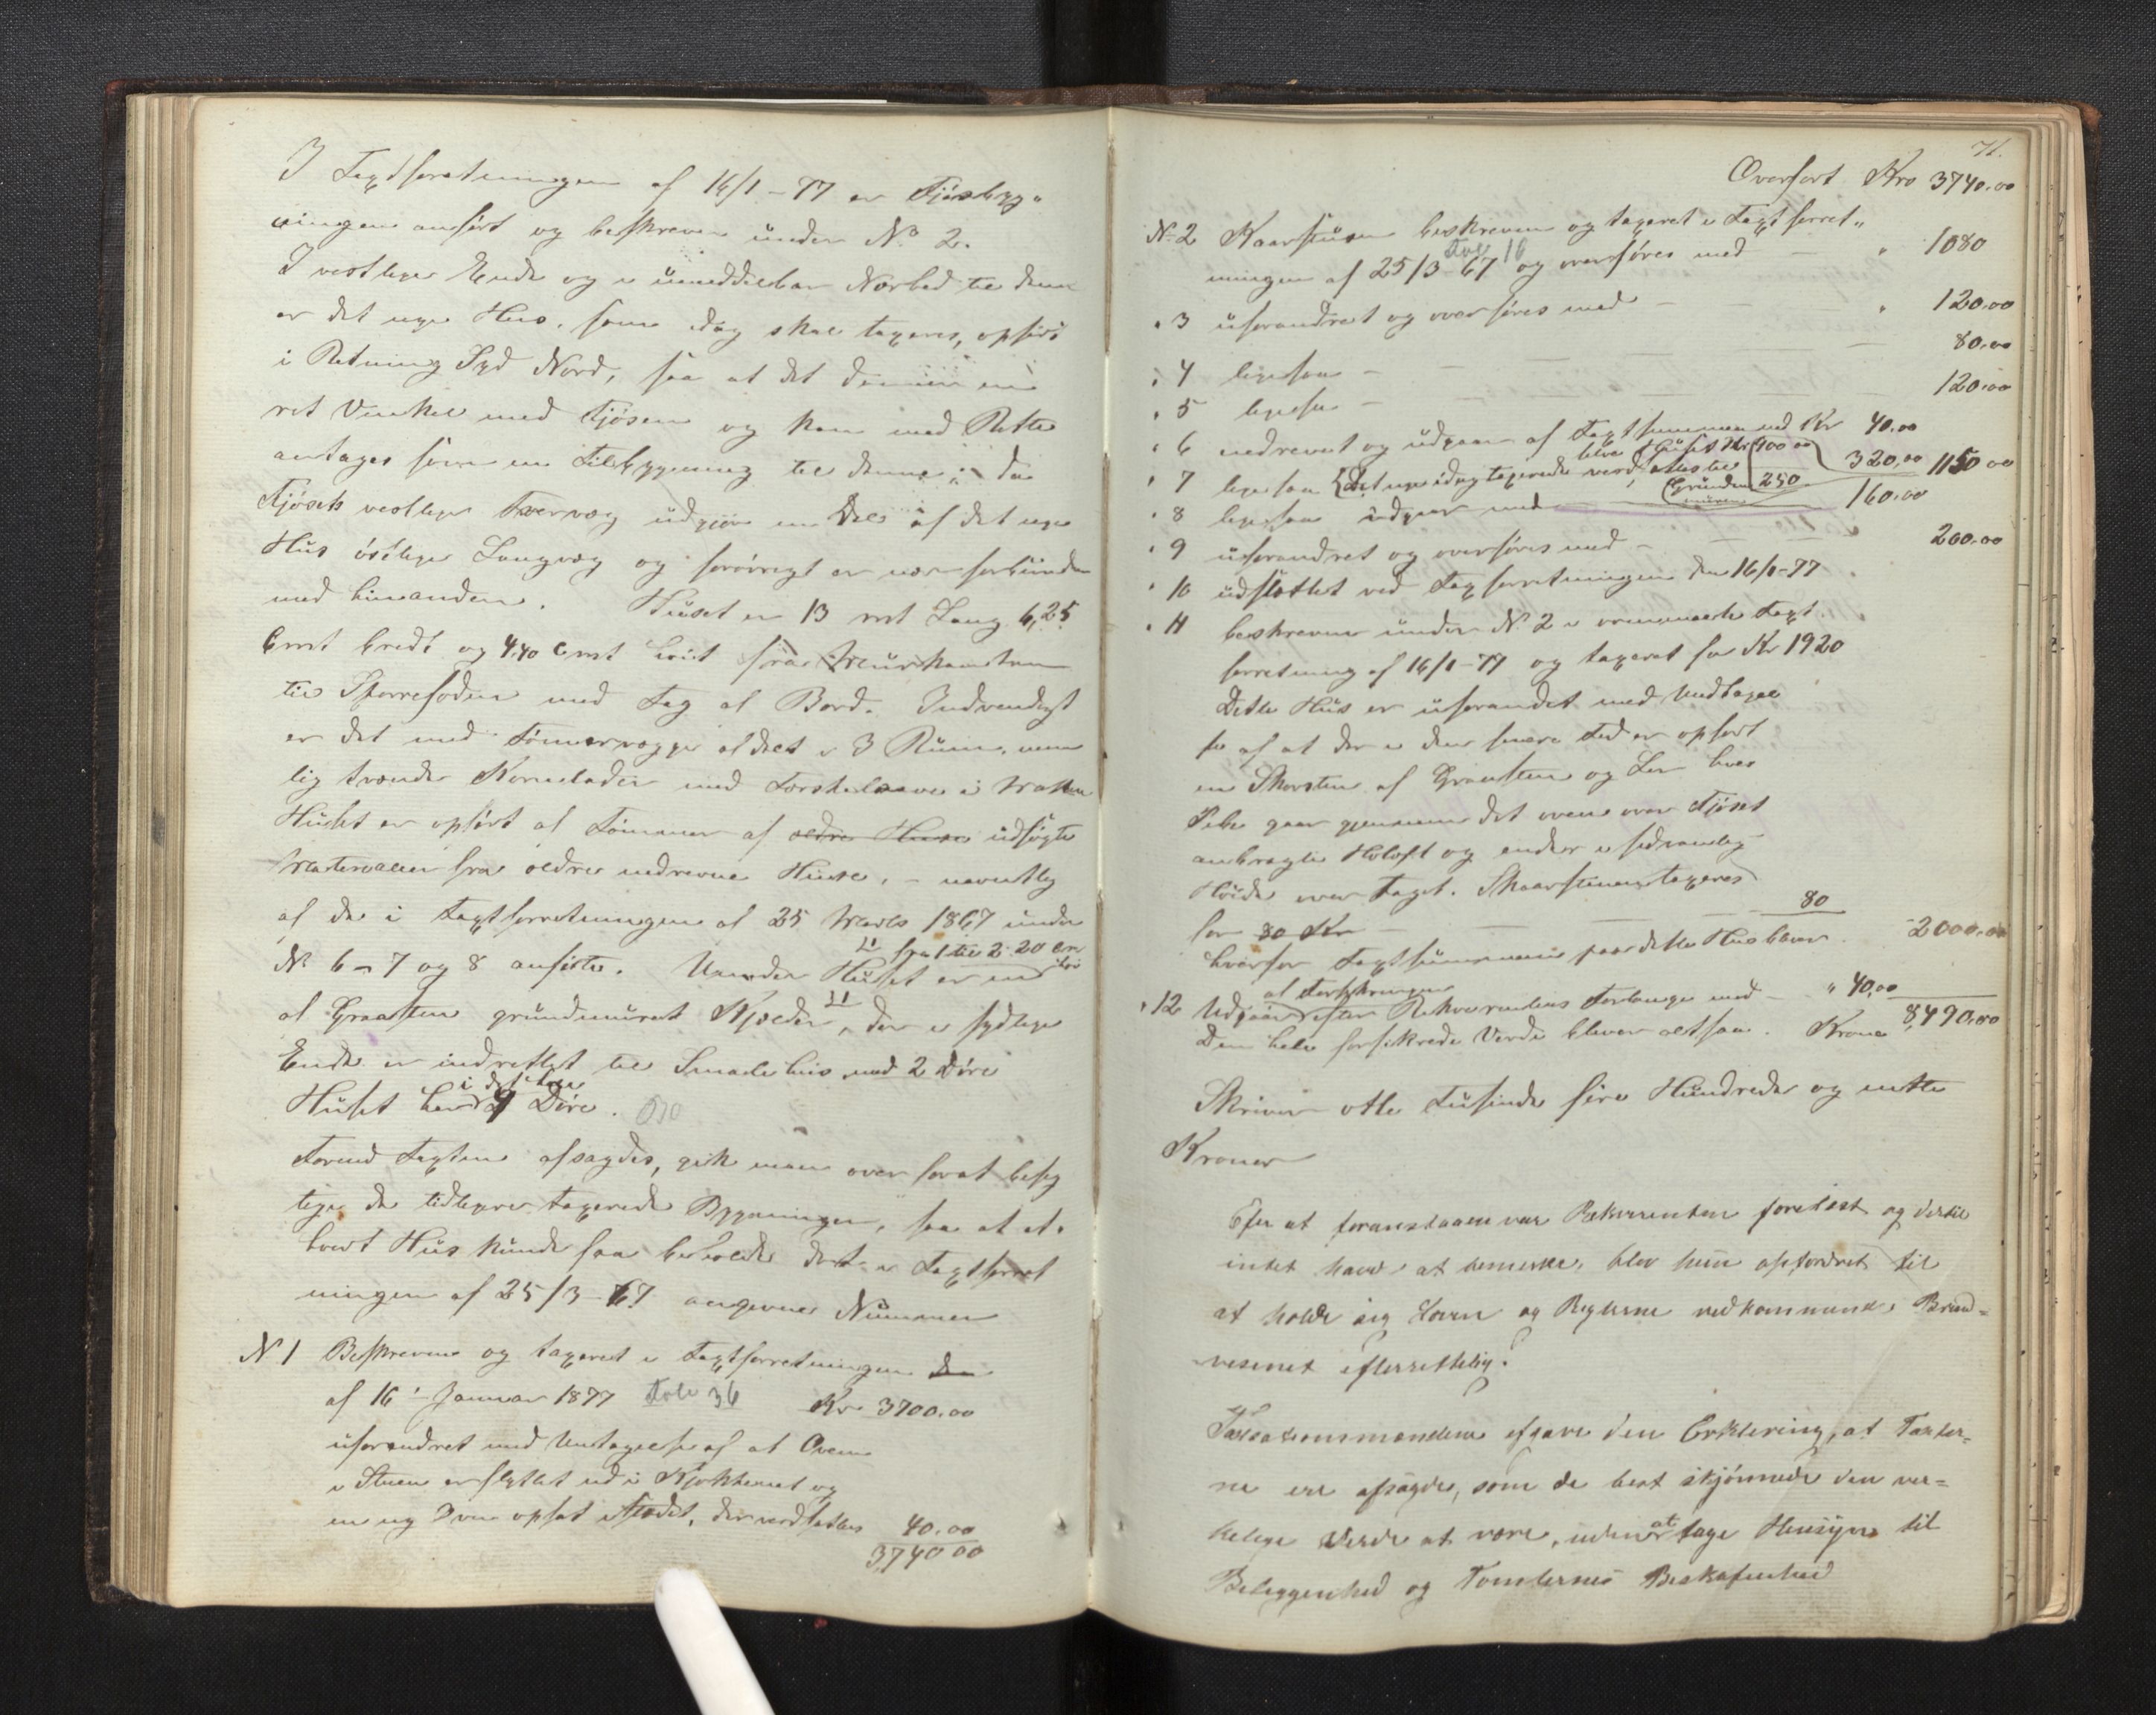 I Taxtforetningen af 16/1-77 er Fjøsbyg„
ningen anført og beskreven under No 2.
I vestlige Ende og i umiddelbar Nærhed til denne
er det nye Hus, som idag skal taxeres, opført
i Retning Syd Nord, saa at det danner en
ret Vinkel med Fjøsen og kan med Rette
antages som en Tilbygning til denne; da
Fjøsets vestlige Tvervæg udgjør en Del af det nye
Hus østlige Langvæg og forøvrigt er nær forbunden
med hinanden. Huset er 13 mt Lang 6,25
Cmt bredt og 4,40 Cmt høit fra Murkanten
til Sparrefoden med Tag af Bord. Indvendigt
er det med Tømmervægge afdelt i 3 Rum, nem
lig tvende Kornelader med Torskelaave i Midten
Huset er opført af Tømmer af ældre Huse udsøgte
Materialier fra ældre nedrevne Huse, - navntlig
af de i Taxtforretningen af 25 Marts 1867 under
No 6-7 og 8 anførte. Under Huset er en
fra 1 til 2.20 cm høi
af Graasten grundmuret Kjælder, der i sydlige
Ende er indrettet til Smalehus med 2 Døre
Huset har i det hele 9 Døre.
Forend Taxten afsagdes, gik man over forat besig
tige de tidligere taxerede Bygninger, saa at et„
hvert Hus kunde faa beholde det i Taxtforret
ningen af 25/3-67 angivne Nummer
N. 1 Beskreven og taxeret i Taxtforretningen den
af 16 Januar 1877 Folio 36 Kr 3700.00
uforandret med Untagelse af at Ovnen
i Stuen er flyttet ud i Kjøkkenet og
en ny Ovn opsat istedet, der værdsættes 40.00
3,740 00
71.
Overført Kro 3740.00
N. 2 Kaarstuen beskreven og taxeret i Taxtforret„
ningen af 25/3-67 Fol 16 og overføres med - „ 1080
„ 3 uforandret og overføres med - „ 120.00
„ 4 ligesaa - 80.00
„ 5 ligesaa - 120.00
„ 6 nedrevet og udgaar af Taxtsummen med Kr 40.00
„ 7 ligesaa (Det nye idag taxerede værdsættes til Huset Kr 900 00 320.00 1150 00
Grunden muren 250
„ 8 ligesaa udgaar med 160.00
„ 9 uforandret og overføres med - 200.00
„ 10 udslettet ved Taxforretningen den 16/1-77
„ 11 beskreven under No 2 i ovennævnte Taxt„
forretning af 16/1-77 og taxeret for Kr 1920
Dette Hus er uforandet med Undtagel
se af at der i den senere Tid er opført
en Skorsten af Graasten og Ler hvis
Pibe gaar gjennem det oven over Fjøset
anbragte Høloft og ender i sedvanlig
Høide over Taget. Skaarstenen taxeres
for 80 Kr - 80
hvorfor Taxtsummen paa dette Hus bliver 2000.00
„ 12 Udgaar af Forsikringen efter Rekvirentens Forlangende med „ 40.00
Den hele forsikrede Værdi bliver altsaa. Kroner 8,490.00
Skriver otte Tusinde fire Hundrede og nitti
Kroner
Efter at foranstaaende var Rekvirenten forelæst og dertil
intet havde at bemærke, blev han opfordret til
at holde sig Loven og Reglerne vedkommende Brand=
vesenet efterrettelig.
Taxtationsmændene afgave den Erklæring, at Taxter=
ne ere afsagde, som de best skjønnede den vir=
kelige Værdi at være, uden at tage Hensyn til
Beliggenhed og Tomternes Beskafenhed